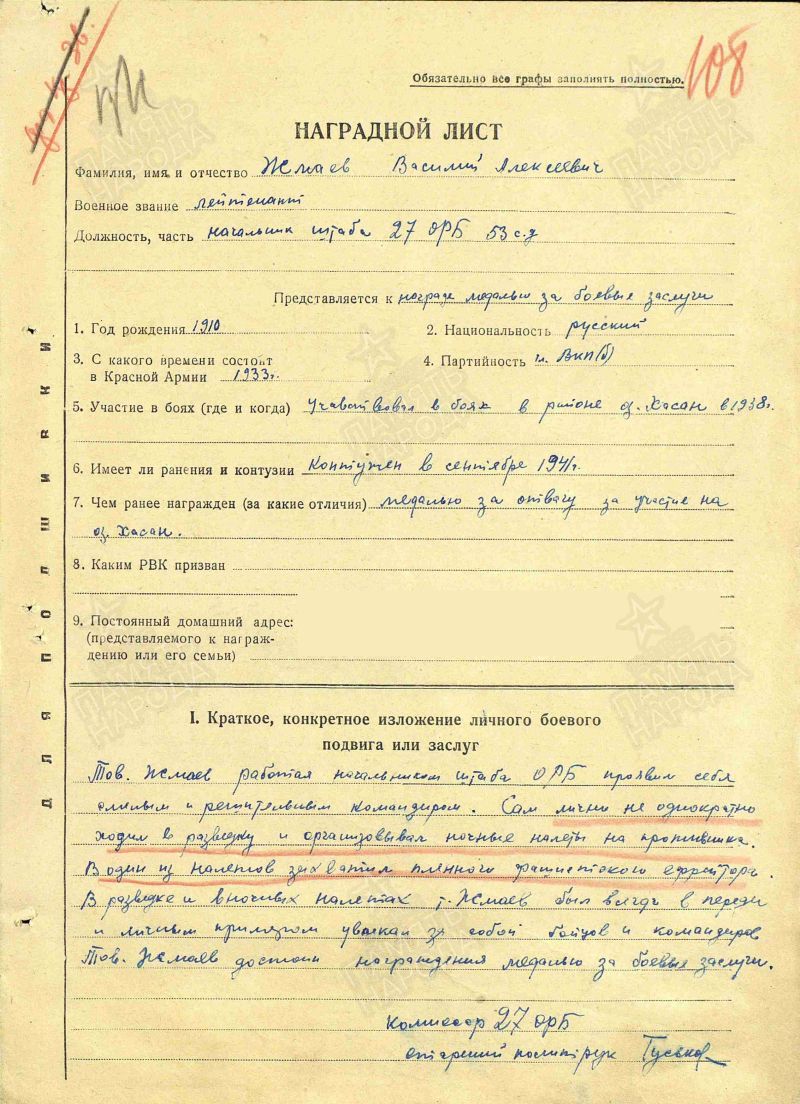 Обязательно все графы заполнять полностью.
108
НАГРАДНОЙ ЛИСТ
Фамилия, имя и отчество Жмаев Василий Алексеевич
Военное звание лейтенант
Должность, часть начальник штаба 27 ОРБ 53 с.д
Представляется к награде медалью за боевые заслуги
1. Год рождения 1910
2. Национальность русский
3. С какого времени состоит
в Красной Армии 1933г.
4. Партийность ч. ВКП(б)
5. Участие в боях (где и когда) Учавствовал в боях в районе оз. Хасан в 1938г.
6. Имеет ли ранения и контузии Контужен в сентябре 1941г.
7. Чем ранее награжден (за какие отличия) медалью за отвагу за участие на
оз. Хасан.
8. Каким РВК призван
9. Постоянный домашний адрес:
(представляемого к награж-
дению или его семьи)
ДЛЯ ПОДШИВКИ
I. Краткое, конкретное изложение личного боевого
подвига или заслуг
Тов. Жмаев работая начальником штаба ОРБ проявил себя
смелым и решительным командиром. Сам лично не однократно
ходил в разведку и организовывал ночные налеты на противника.
В один из налетов захватил пленного фашистского ефрейтора.
В разведке и в ночных налетах т. Жмаев был всегда в переди
и личным примером увлекал за собой бойцов и командиров
Тов. Жмаев достоин награждения медалью за боевые заслуги.
Комиссар 27 ОРБ
старший политрук Гуськов
ПАМЯТЬ НАРОДА